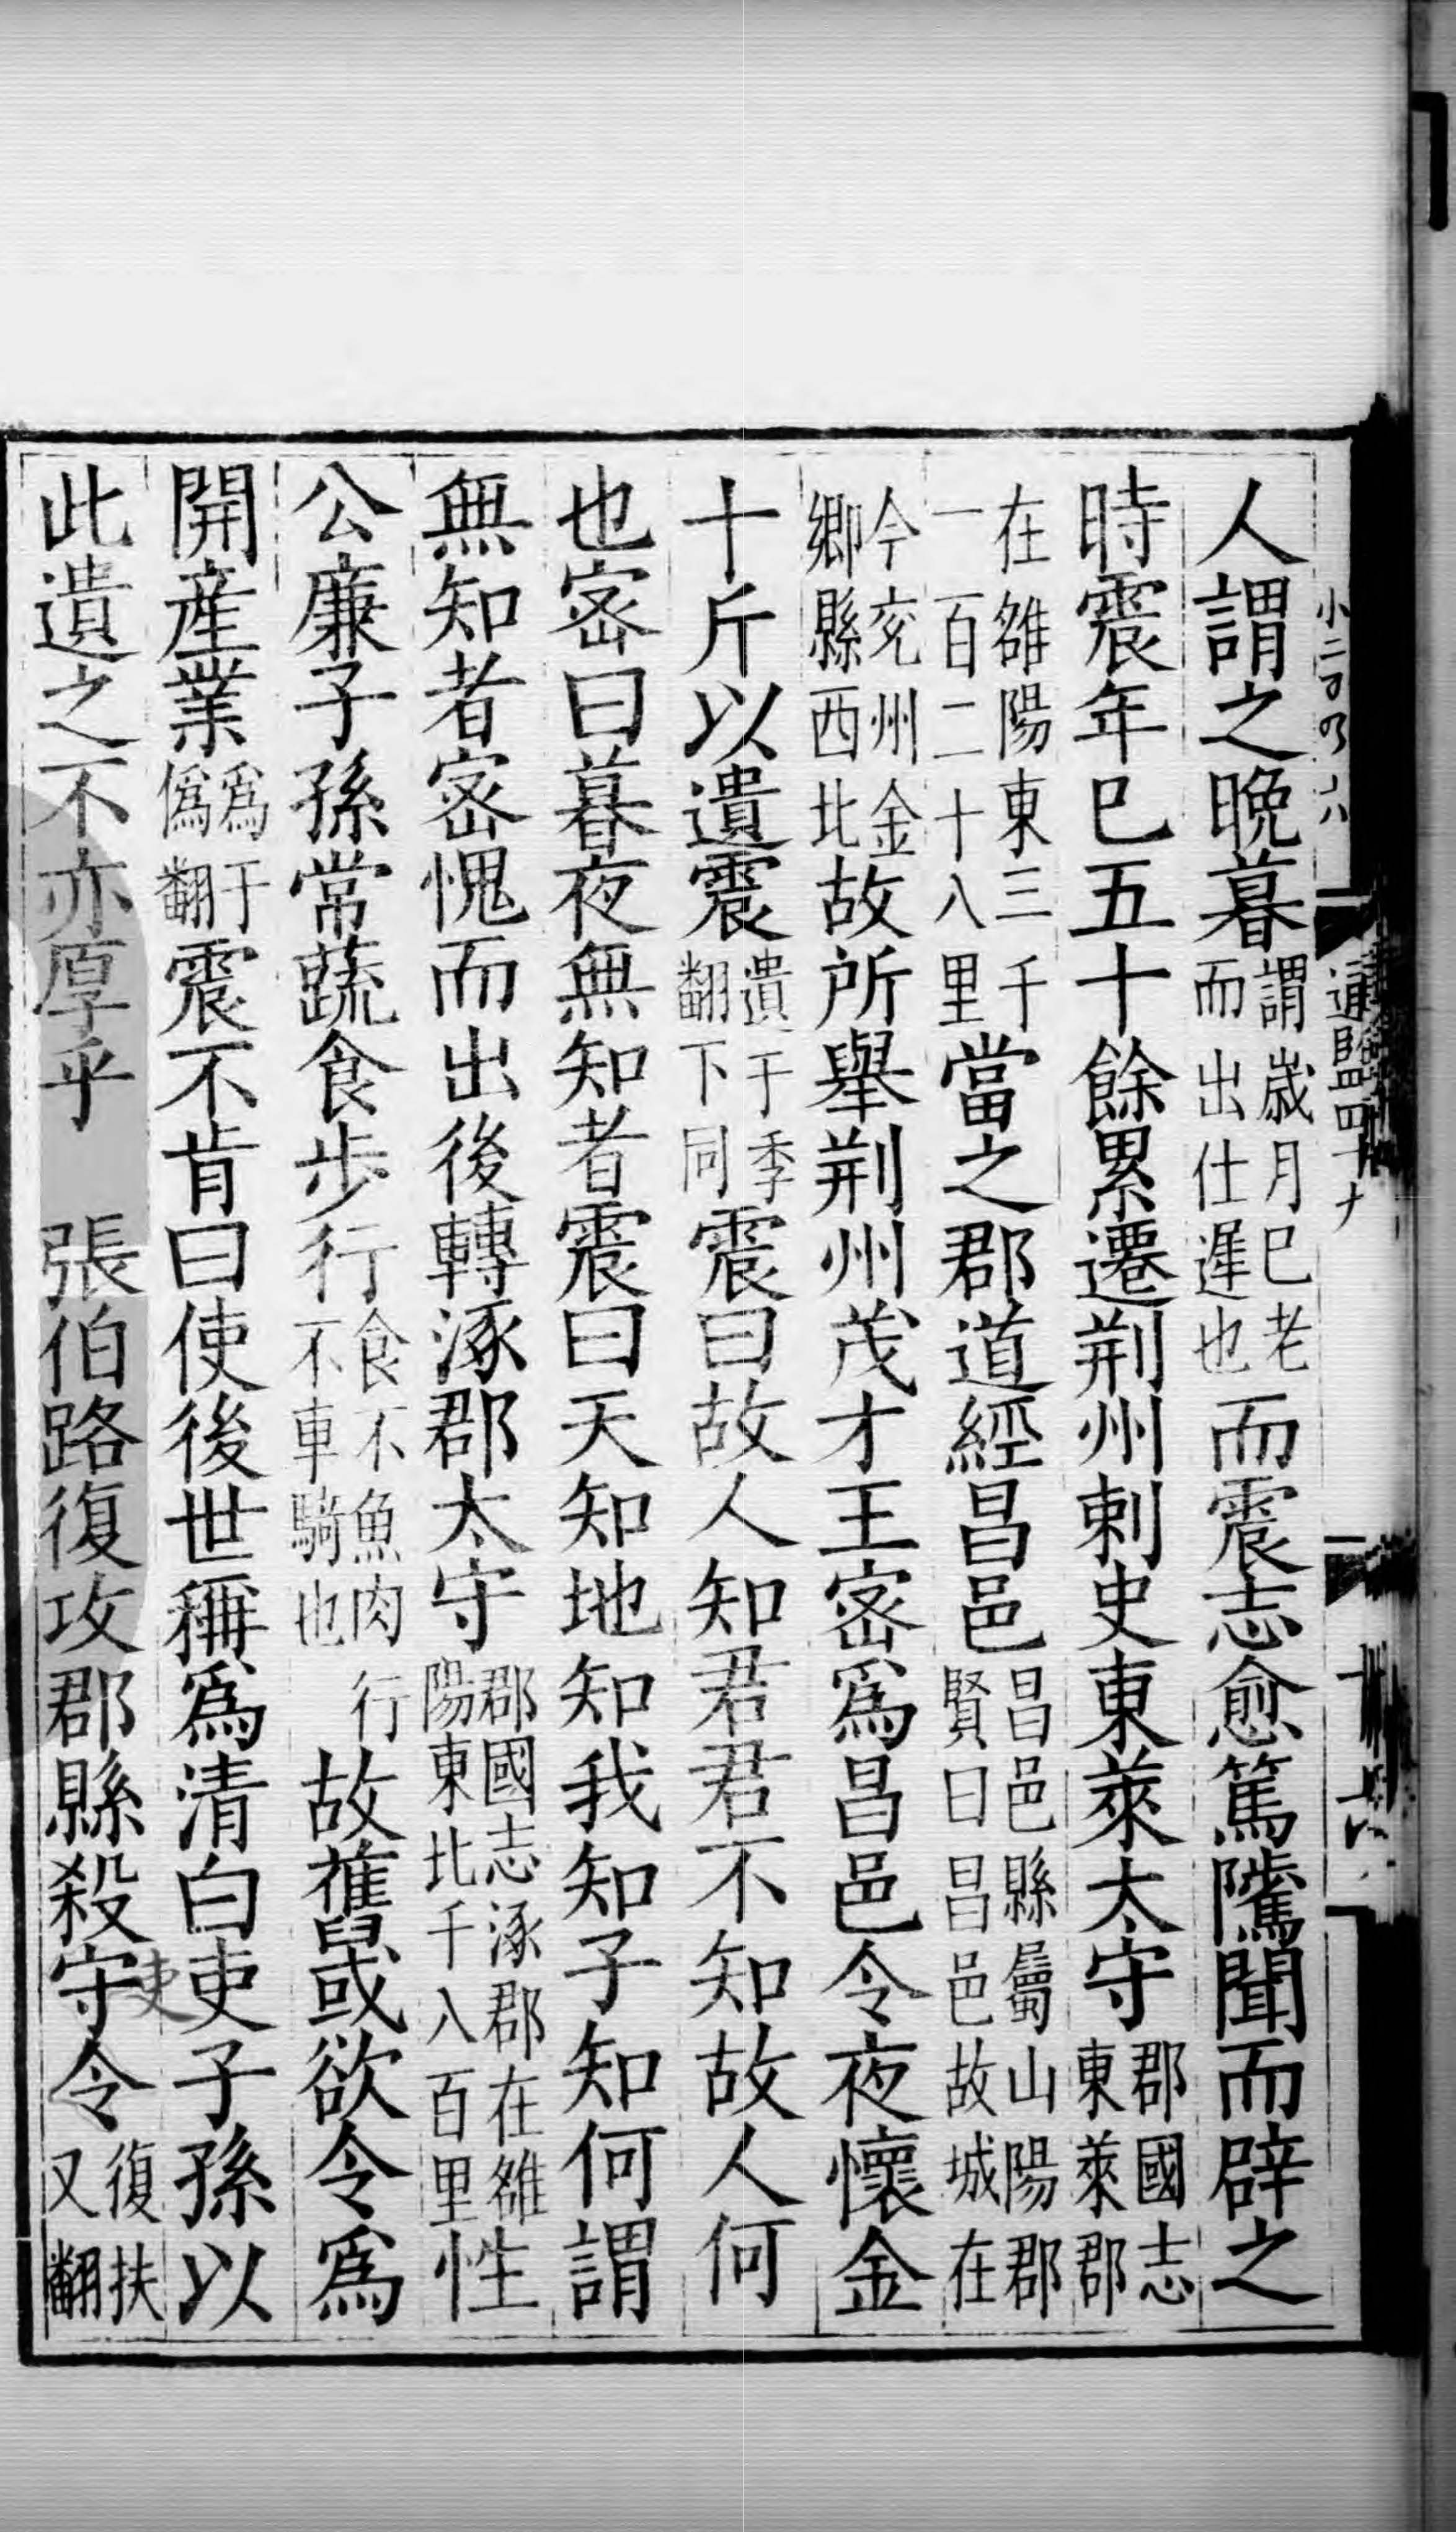 人謂之晩暮謂歳月巳老而出仕遲也而震志愈篤隲聞而辟之
時震年巳五十餘累遷荆州刺史東萊太守郡國志東萊郡
在雒陽東三千一百二十八里當之郡道經昌邑昌邑縣屬山陽郡賢曰昌邑故城在
今兖州金鄉縣西北故所舉荆州茂才王宻爲昌邑令夜懷金
十斤以遺震遺于季翻下同震曰故人知君君不知故人何
也宻曰暮夜無知者震曰天知地知我知子知何謂
無知者宻愧而出後轉涿郡太守郡國志涿郡在雒陽東北千八百里性
公廉子孫常蔬食步行食不魚肉行不車騎也故舊或欲令爲
開産業爲于僞翻震不肯曰使後世稱爲清白吏子孫以
此遺之不亦厚乎　張伯路復攻郡縣殺守令復扶又翻
吏